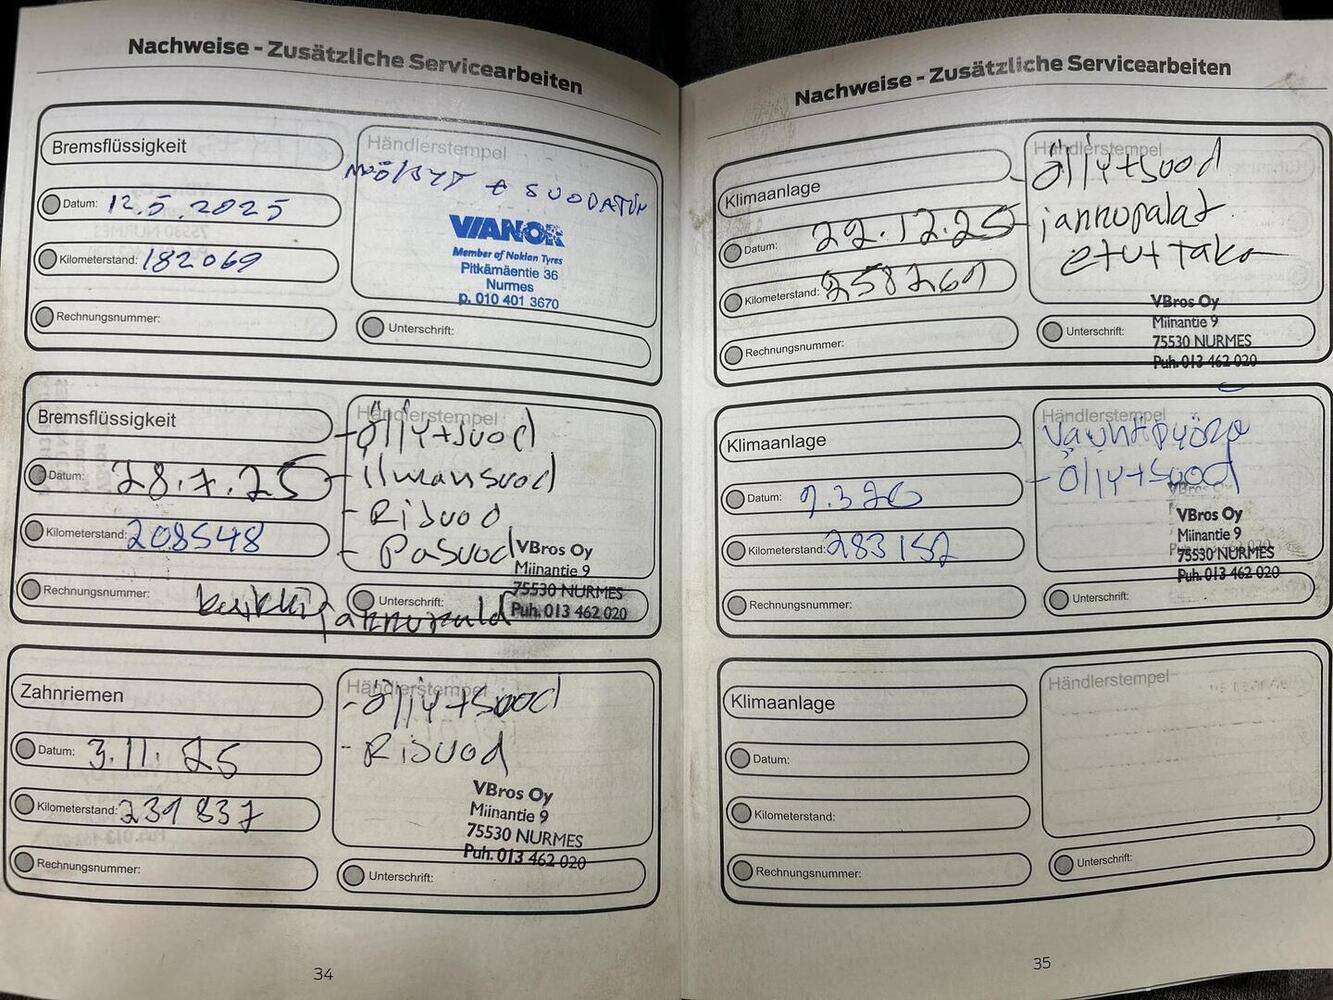 Nachweise - Zusätzliche Servicearbeiten
Bremsflüssigkeit
Händlerstempel
+ SUODATIN
Datum: 12.5.2025
Kilometerstand: 182069
VIANOR
Member of Nokian Tyres
Pitkämäentie 36
Nurmes
p. 010 401 3670
Rechnungsnummer:
Unterschrift:
Bremsflüssigkeit
Händlerstempel
- öljy+suod
Datum: 28.7.25
- ilmansuod
- Risuod
Kilometerstand: 208548
- Pasuod
VBros Oy
Miinantie 9
75530 NURMES
Puh. 013 462 020
Rechnungsnummer: kaikki
Unterschrift:
Zahnriemen
Händlerstempel
- öljy+suod
Datum: 3.11.25
- Risuod
Kilometerstand: 231837
VBros Oy
Miinantie 9
75530 NURMES
Puh. 013 462 020
Rechnungsnummer:
Unterschrift:
34
Nachweise - Zusätzliche Servicearbeiten
Klimaanlage
Händlerstempel
- öljy+suod
Datum: 22.12.25
- jarrupalat
etu+taka
Kilometerstand: 258761
VBros Oy
Miinantie 9
75530 NURMES
Puh. 013 462 020
Rechnungsnummer:
Unterschrift:
Klimaanlage
Händlerstempel
- öljy+suod
Datum: 9.3.26
Kilometerstand: 283152
VBros Oy
Miinantie 9
75530 NURMES
Puh. 013 462 020
Rechnungsnummer:
Unterschrift:
Klimaanlage
Händlerstempel
Datum:
Kilometerstand:
Rechnungsnummer:
Unterschrift:
35